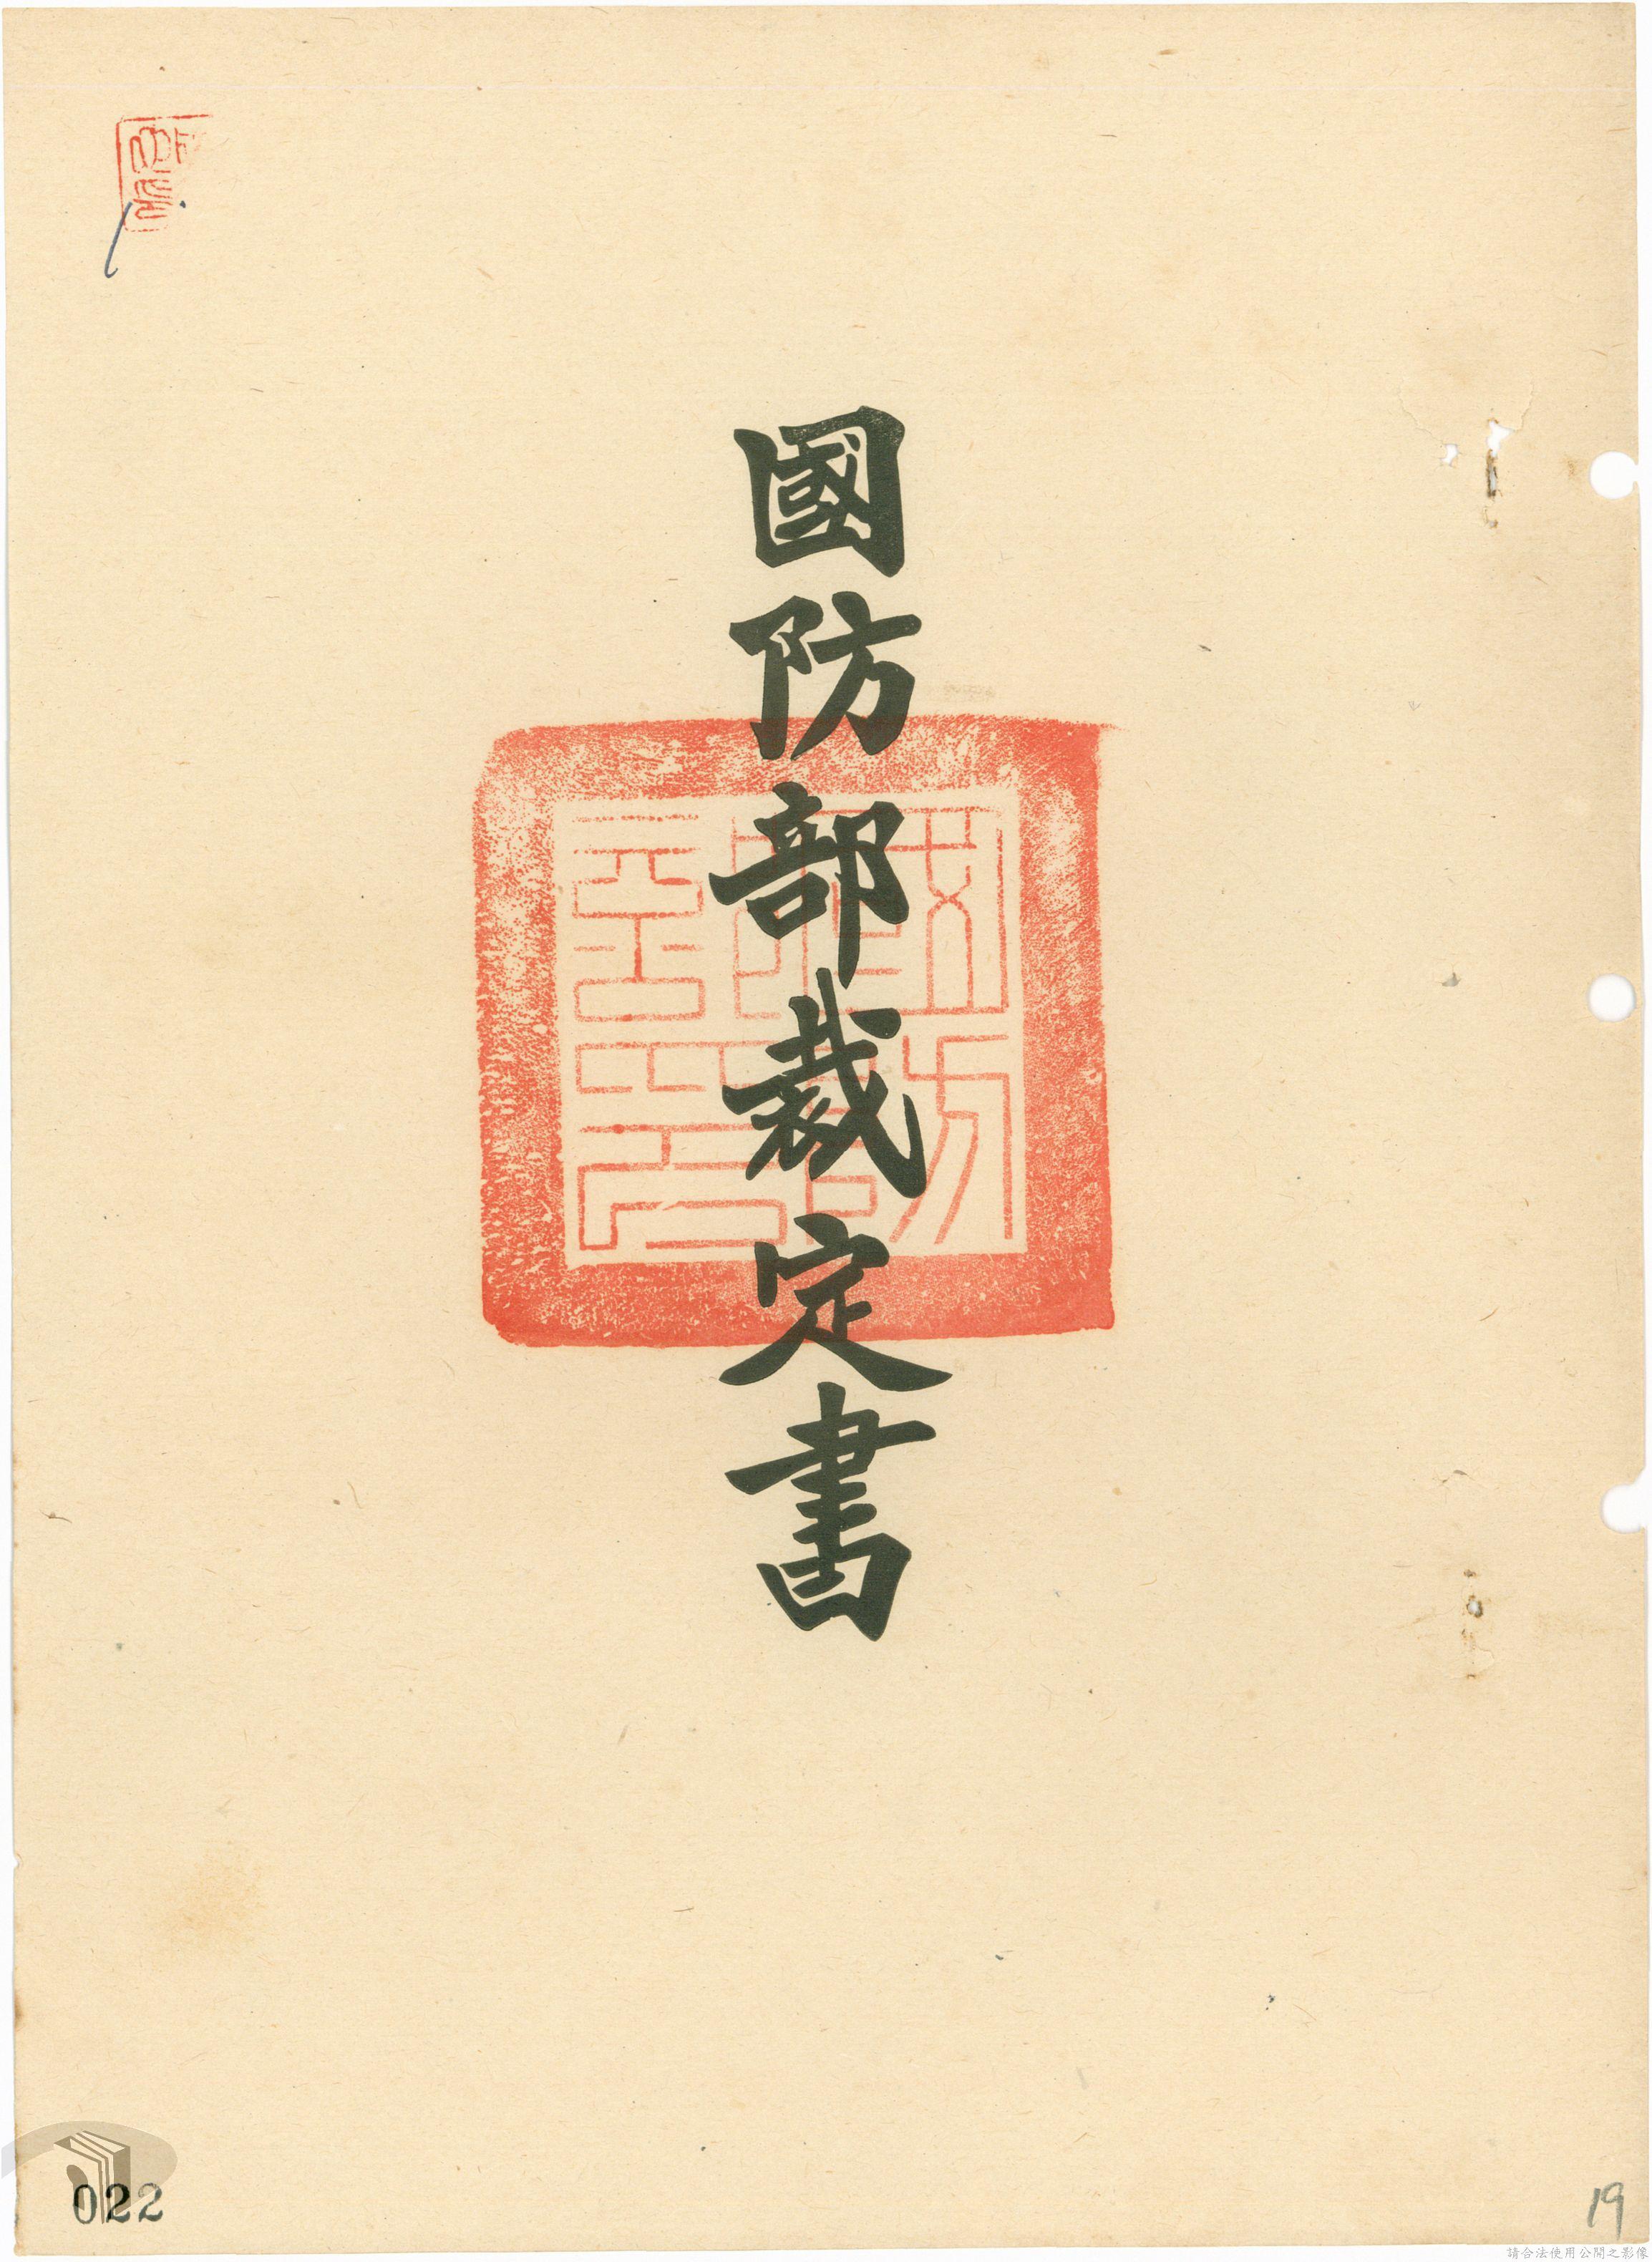 國防部裁定書
022
19
請合法使用公開之影像